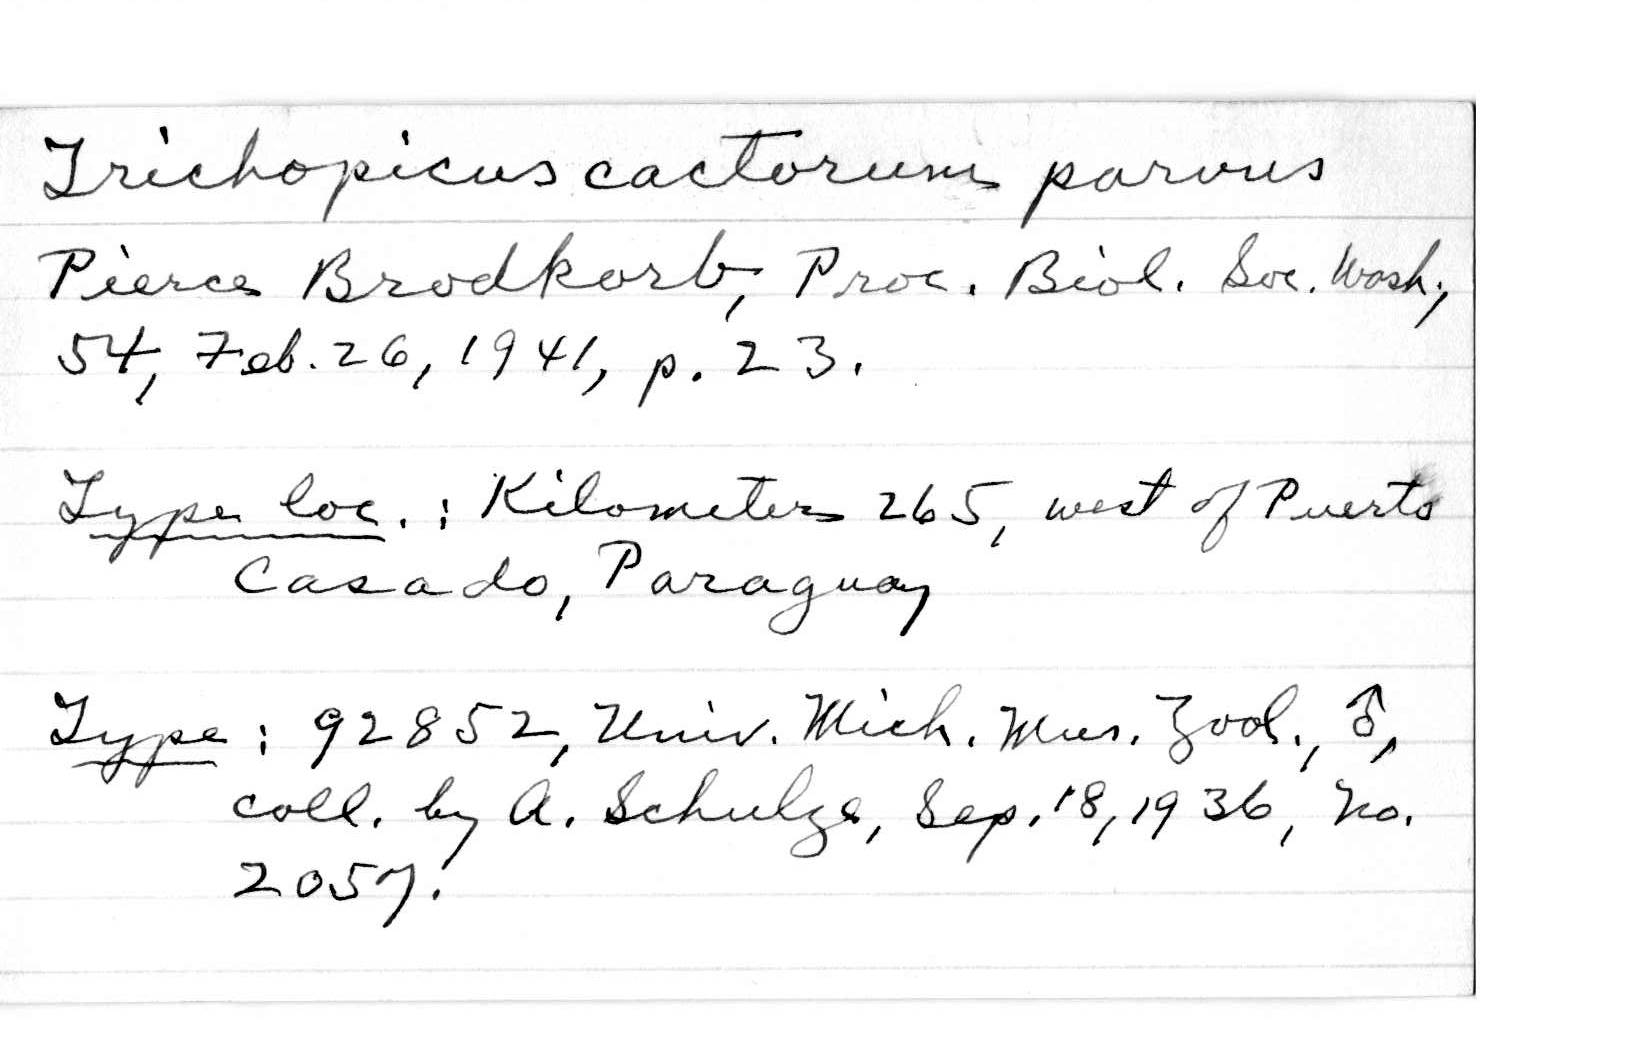 Trichopicus cactorum parvus
Pierce Brodkorb, Proc. Biol. Soc. Wash.,
54, Feb. 26, 1941, p. 23.
Type loc. : Kilometer 265, west of Puerto
Casado, Paraguay
Type : 92852, Univ. Mich. Mus. Zool., ♂,
coll. by A. Schulze, Sep. 18, 1936, No.
2057.